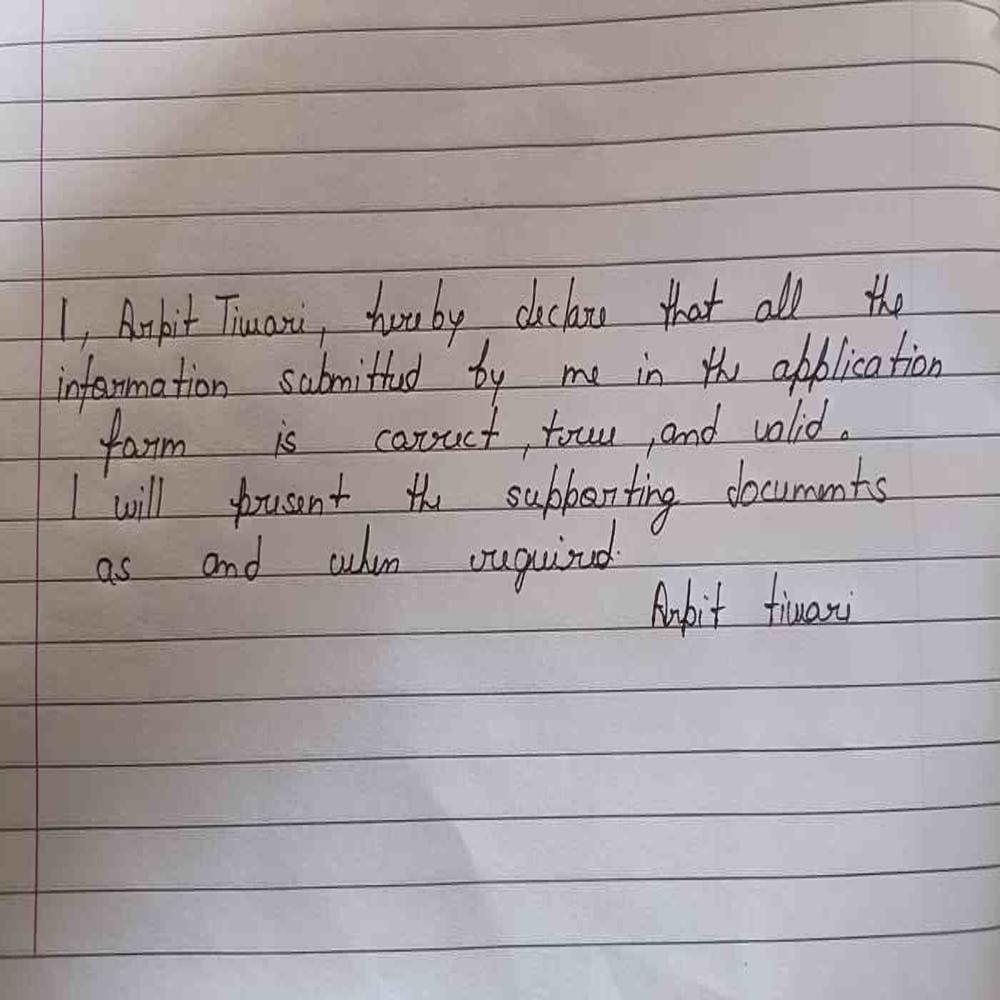 I, Arpit Tiwari, hereby declare that all the
information submitted by me in the application
form is correct, true, and valid.
I will present the supporting documents
as and when required.
Arpit tiwari